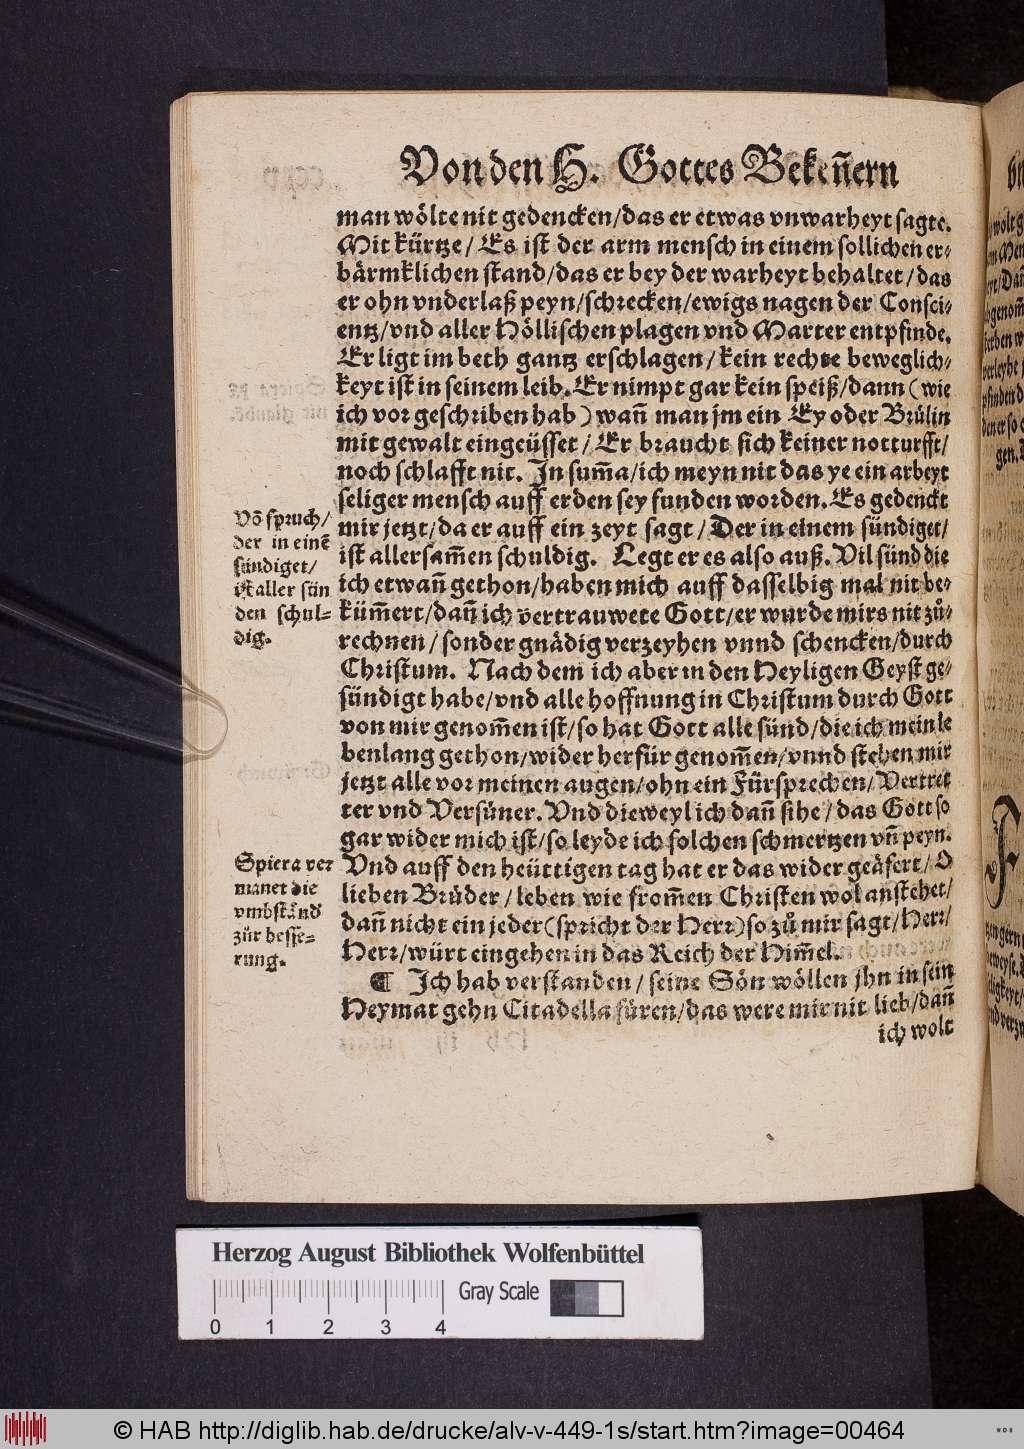 Von den H. Gottes Bekeñern
man wölte nit gedencken/das er etwas vnwarheyt sagte.
Mit kürtze/ Es ist der arm mensch in einem sollichen er-
bärmklichen stand/das er bey der warheyt behaltet/das
er ohn vnderlaß peyn/schrecken/ewigs nagen der Consci-
entz/vnd aller Höllischen plagen vnd Marter entpfinde.
Er ligt im beth gantz erschlagen/kein rechte beweglich-
keyt ist in seinem leib. Er nimpt gar kein speiß/dann (wie
ich vor geschriben hab) wañ man jm ein Ey oder Brülin
mit gewalt eingeüsset/ Er braucht sich keiner notturfft/
noch schlafft nit. In sum̃a/ich meyn nit das ye ein arbeyt
seliger mensch auff erden sey funden worden. Es gedenckt
mir jetzt/da er auff ein zeyt sagt/Der in einem sündiget/
ist allersam̃en schuldig. Legt er es also auß. Vil sünd die
ich etwañ gethon/haben mich auff dasselbig mal nit be-
küm̃ert/dañ ich vertrauwete Gott/er wurde mirs nit zů-
rechnen/sonder gnädig verzeyhen vnnd schencken/durch
Christum. Nach dem ich aber in den Heyligen Geyst ge-
sündigt habe/vnd alle hoffnung in Christum durch Gott
von mir genom̃en ist/so hat Gott alle sünd/die ich mein le
benlang gethon/wider herfür genom̃en/vnnd stehen mir
jetzt alle vor meinen augen/ohn ein Fürsprechen/Vertret
ter vnd Versüner. Vnd dieweyl ich dañ sihe/das Gott so
gar wider mich ist/so leyde ich solchen schmertzen vñ peyn.
Vnd auff den heüttigen tag hat er das wider geäfert/O
lieben Brüder/leben wie from̃en Christen wol anstehet/
dañ nicht ein jeder (spricht der Herr) so zů mir sagt/Herr/
Herr/würt eingehen in das Reich der Him̃el.
¶ Ich hab verstanden/seine Sön wöllen jhn in sein
Heymat gehn Citadella füren/das were mir nit lieb/dañ
ich wolt
Võ spruch/
der in einẽ
sündiget/
ist aller sün
den schul-
dig.
Spiera ver
manet die
vmbständ
zůr besse-
rung.
Herzog August Bibliothek Wolfenbüttel
Gray Scale
0 1 2 3 4
© HAB http://diglib.hab.de/drucke/alv-v-449-1s/start.htm?image=00464